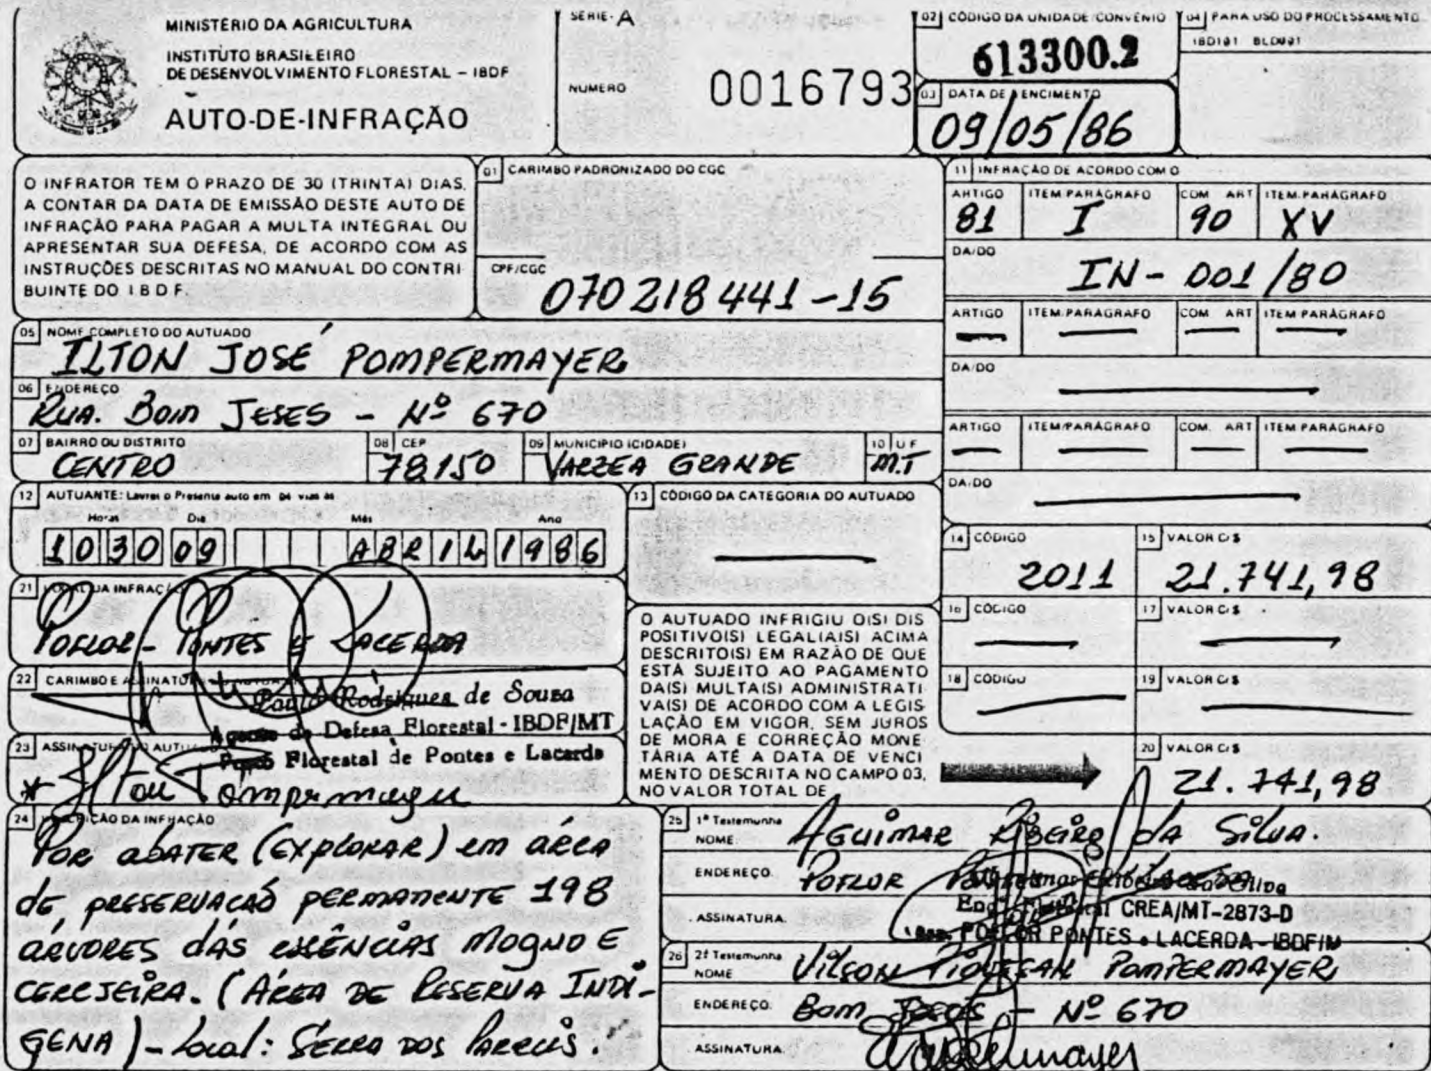 MINISTÉRIO DA AGRICULTURA
INSTITUTO BRASILEIRO
DE DESENVOLVIMENTO FLORESTAL – IBDF
AUTO-DE-INFRAÇÃO
SÉRIE- A
NUMERO 0016793
02 CÓDIGO DA UNIDADE/CONVÊNIO
613300.2
03 DATA DE VENCIMENTO
09/05/86
04 PARA USO DO PROCESSAMENTO
O INFRATOR TEM O PRAZO DE 30 (TRINTA) DIAS,
A CONTAR DA DATA DE EMISSÃO DESTE AUTO DE
INFRAÇÃO PARA PAGAR A MULTA INTEGRAL OU
APRESENTAR SUA DEFESA, DE ACORDO COM AS
INSTRUÇÕES DESCRITAS NO MANUAL DO CONTRI
BUINTE DO I B D F.
01 CARIMBO PADRONIZADO DO CGC
CPF/CGC
070218441-15
11 INFRAÇÃO DE ACORDO COM O
ARTIGO ITEM/PARÁGRAFO COM ART ITEM/PARÁGRAFO
81 I 90 XV
DA/DO
IN- 001/80
ARTIGO ITEM/PARÁGRAFO COM ART ITEM/PARÁGRAFO
DA/DO
ARTIGO ITEM/PARÁGRAFO COM. ART ITEM/PARÁGRAFO
DA/DO
05 NOME COMPLETO DO AUTUADO
ILTON JOSÉ POMPERMAYER
06 ENDEREÇO
RUA. BOM JESES - Nº 670
07 BAIRRO OU DISTRITO
CENTRO
08 CEP
78150
09 MUNICIPIO (CIDADE)
VARZEA GRANDE
10 U F
MT
12 AUTUANTE: Lavrei o Presente auto em 04 vias às
Horas Dia Mês Ano
1030 09 ABRIL 1986
13 CÓDIGO DA CATEGORIA DO AUTUADO
14 CÓDIGO
2011
15 VALOR C/$
21.741,98
16 CÓDIGO
17 VALOR C/$
18 CÓDIGO
19 VALOR C/$
20 VALOR C/$
21.741,98
21 LOCAL DA INFRAÇÃO
POFLOR - PONTES E LACERDA
22 CARIMBO E ASSINATURA DO AUTUANTE
Paulo Rodrigues de Souza
Agente de Defesa Florestal - IBDF/MT
Posto Florestal de Pontes e Lacerda
23 ASSINATURA DO AUTUADO
O AUTUADO INFRIGIU O(S) DIS
POSITIVO(S) LEGAL(AIS) ACIMA
DESCRITO(S) EM RAZÃO DE QUE
ESTÁ SUJEITO AO PAGAMENTO
DA(S) MULTA(S) ADMINISTRATI
VA(S) DE ACORDO COM A LEGIS
LAÇÃO EM VIGOR, SEM JUROS
DE MORA E CORREÇÃO MONE
TÁRIA ATÉ A DATA DE VENCI
MENTO DESCRITA NO CAMPO 03,
NO VALOR TOTAL DE
24 DESCRIÇÃO DA INFRAÇÃO
POR ABATER (EXPLORAR) EM AREA
DE PRESERVACAO PERMANENTE 198
ARVORES DAS ESSÊNCIAS MOGNO E
CEREJEIRA. (AREA DE RESERVA INDÍ-
GENA) - Local: SERRA DOS PARECIS.
25 1ª Testemunha
NOME: AGUIMAR RIBEIRO DA SILVA.
ENDEREÇO. POFLOR
ASSINATURA.
CREA/MT-2873-D
POFLOR PONTES e LACERDA - IBDF/M
26 2ª Testemunha
NOME VILSON POMPERMAYER
ENDEREÇO. BOM - Nº 670
ASSINATURA.